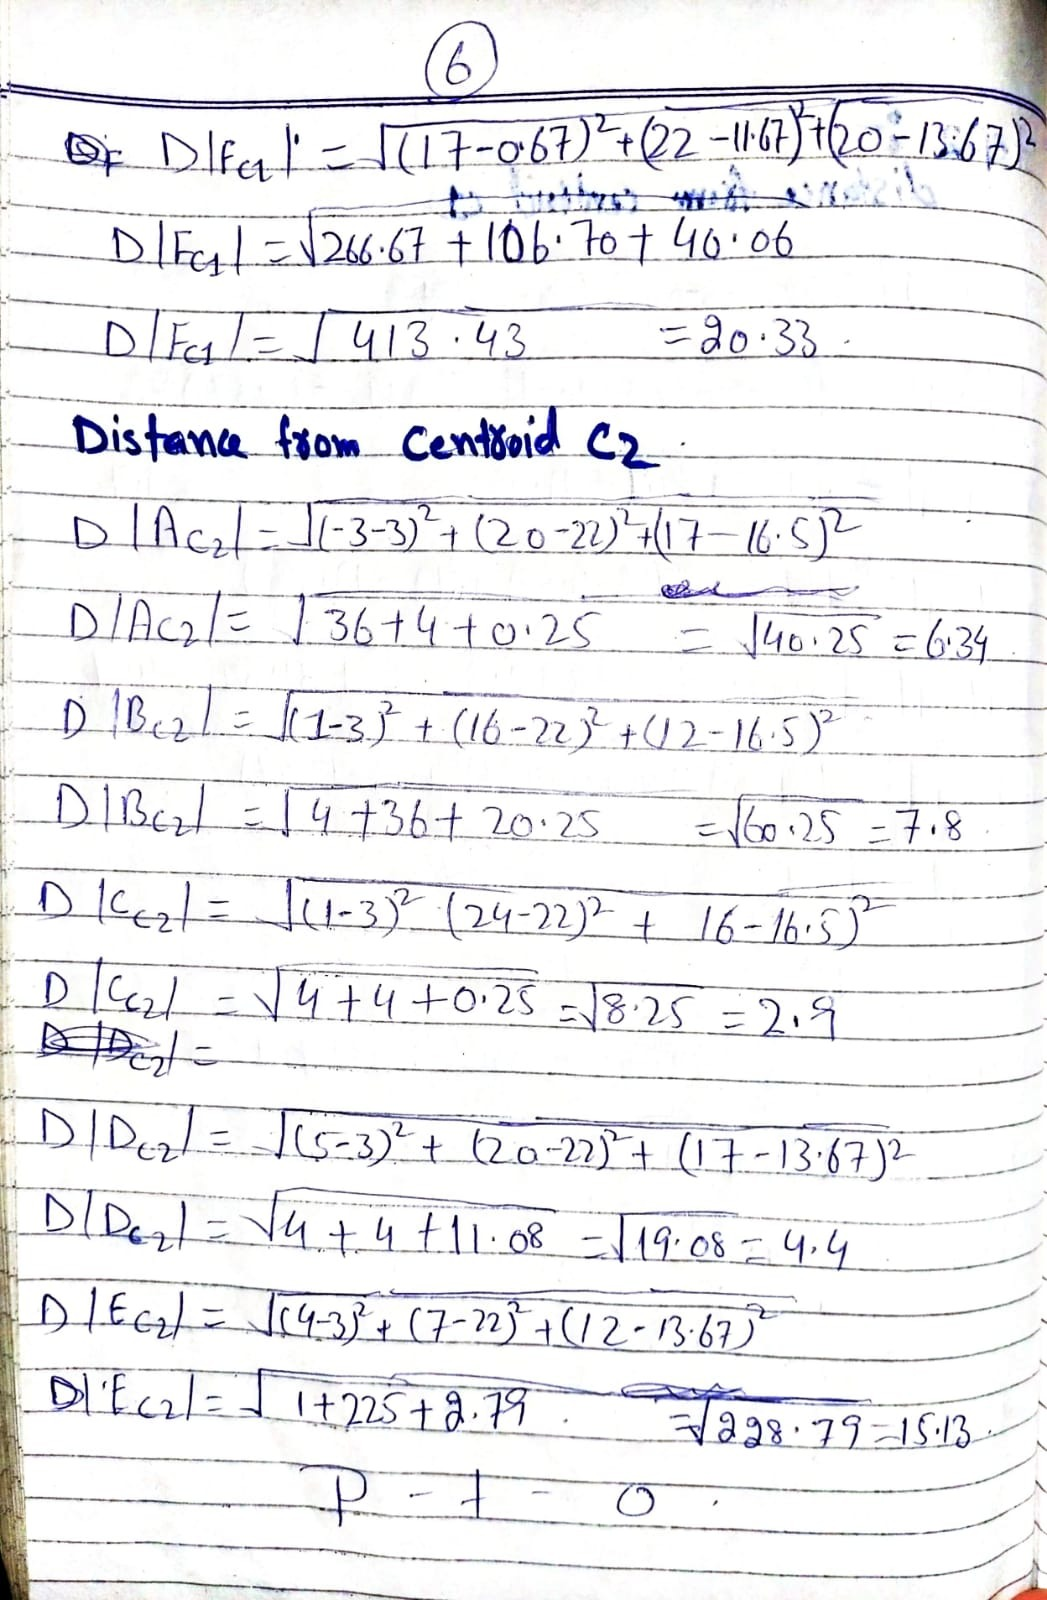 6
D|Fc1| = √(17-0.67)² + (22-11.67)² + (20-13.67)²
D|Fc1| = √266.67 + 106.70 + 40.06
D|Fc1| = √413.43 = 20.33.
Distance from Centroid C2
D|Ac2| = √(-3-3)² + (20-22)² + (17-16.5)²
D|Ac2| = √36+4+0.25 = √40.25 = 6.34
D|Bc2| = √(1-3)² + (16-22)² + (12-16.5)²
D|Bc2| = √4+36+20.25 = √60.25 = 7.8
D|Cc2| = √(1-3)² (24-22)² + 16-16.5)²
D|Cc2| = √4+4+0.25 = √8.25 = 2.9
D|Dc2| =
D|Dc2| = √(5-3)² + (20-22)² + (17-13.67)²
D|Dc2| = √4+4+11.08 = √19.08 = 4.4
D|Ec2| = √(4-3)² + (7-22)² + (12-13.67)²
D|Ec2| = √1+225+2.79 = √228.79 = 15.13.
P - t - o.